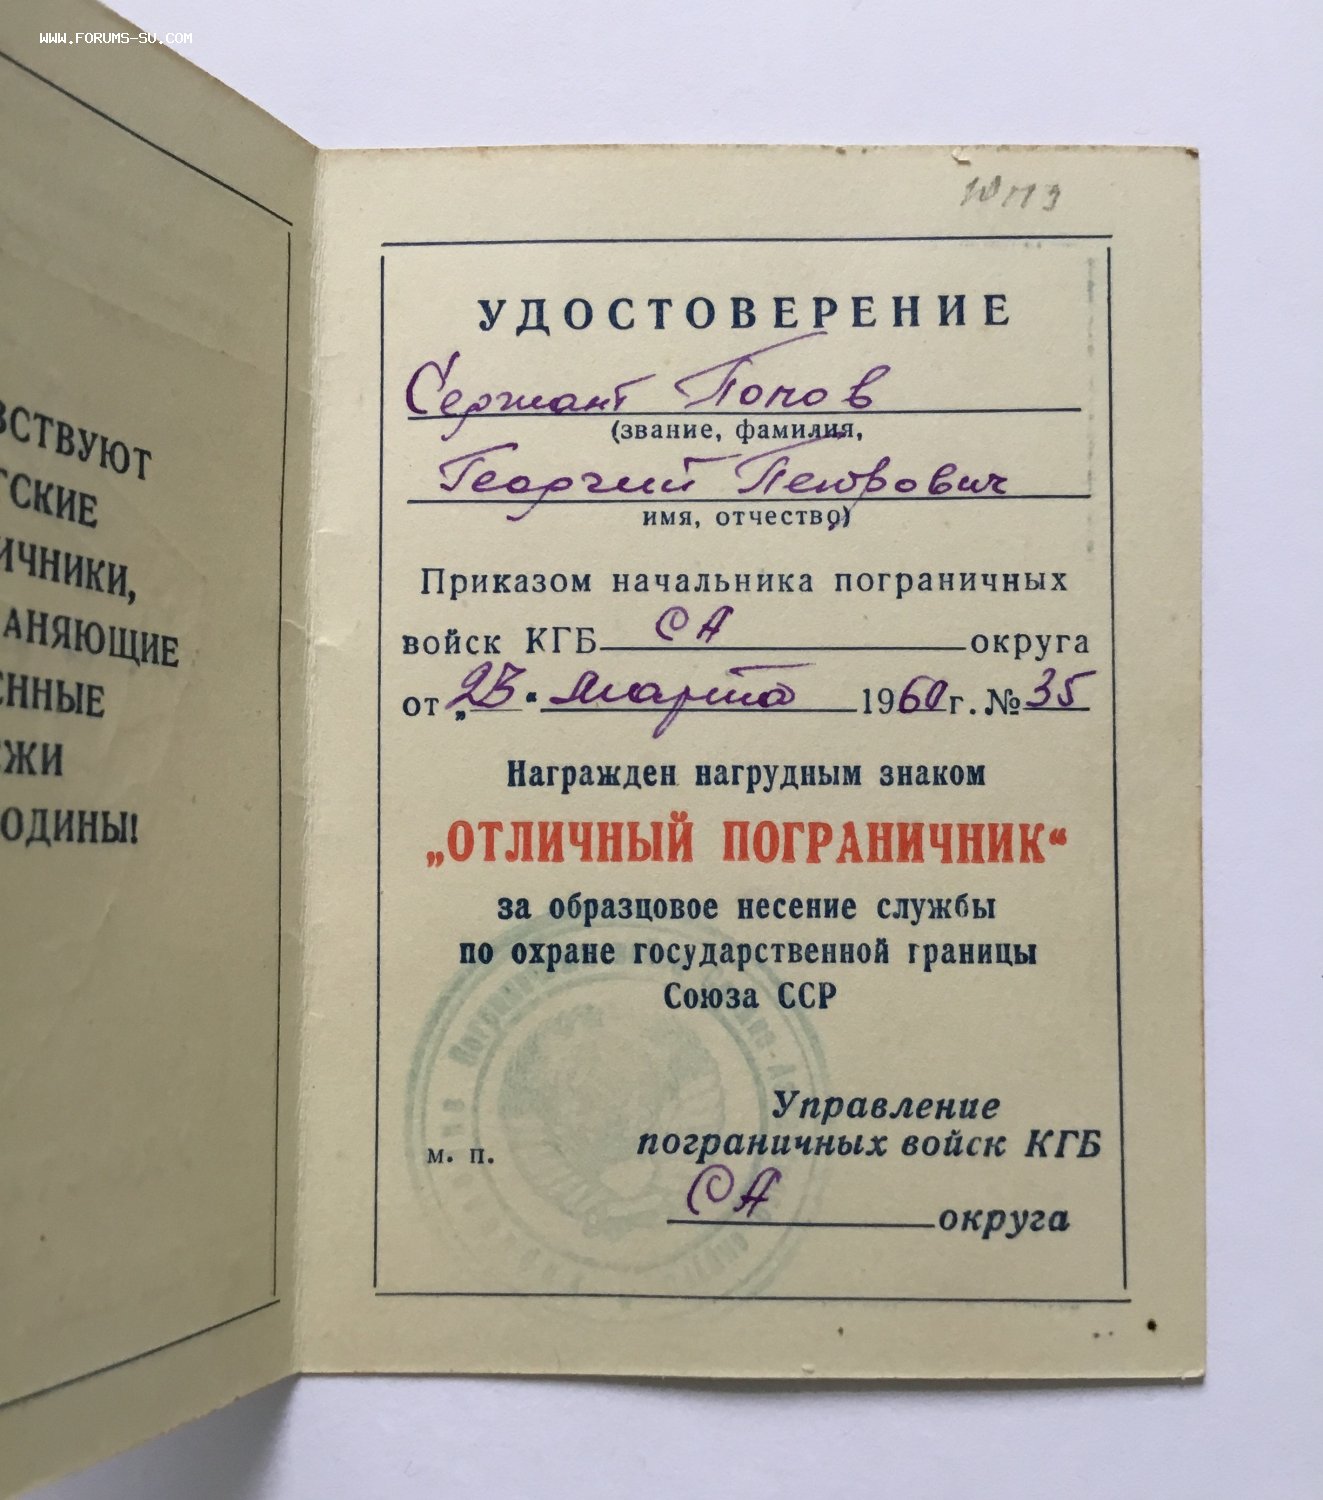 WWW.FORUMS-SU.COM
ВСТВУЮТ
ТСКИЕ
ИЧНИКИ,
АНЯЮЩИЕ
ЕННЫЕ
ЕЖИ
ОДИНЫ!
УДОСТОВЕРЕНИЕ
Сержант Попов
(звание, фамилия,
Георгий Петрович
имя, отчество)
Приказом начальника пограничных
войск КГБ СА округа
от „23“ марта 1960 г. № 35
Награжден нагрудным знаком
„ОТЛИЧНЫЙ ПОГРАНИЧНИК“
за образцовое несение службы
по охране государственной границы
Союза ССР
Управление
пограничных войск КГБ
м. п.
СА округа